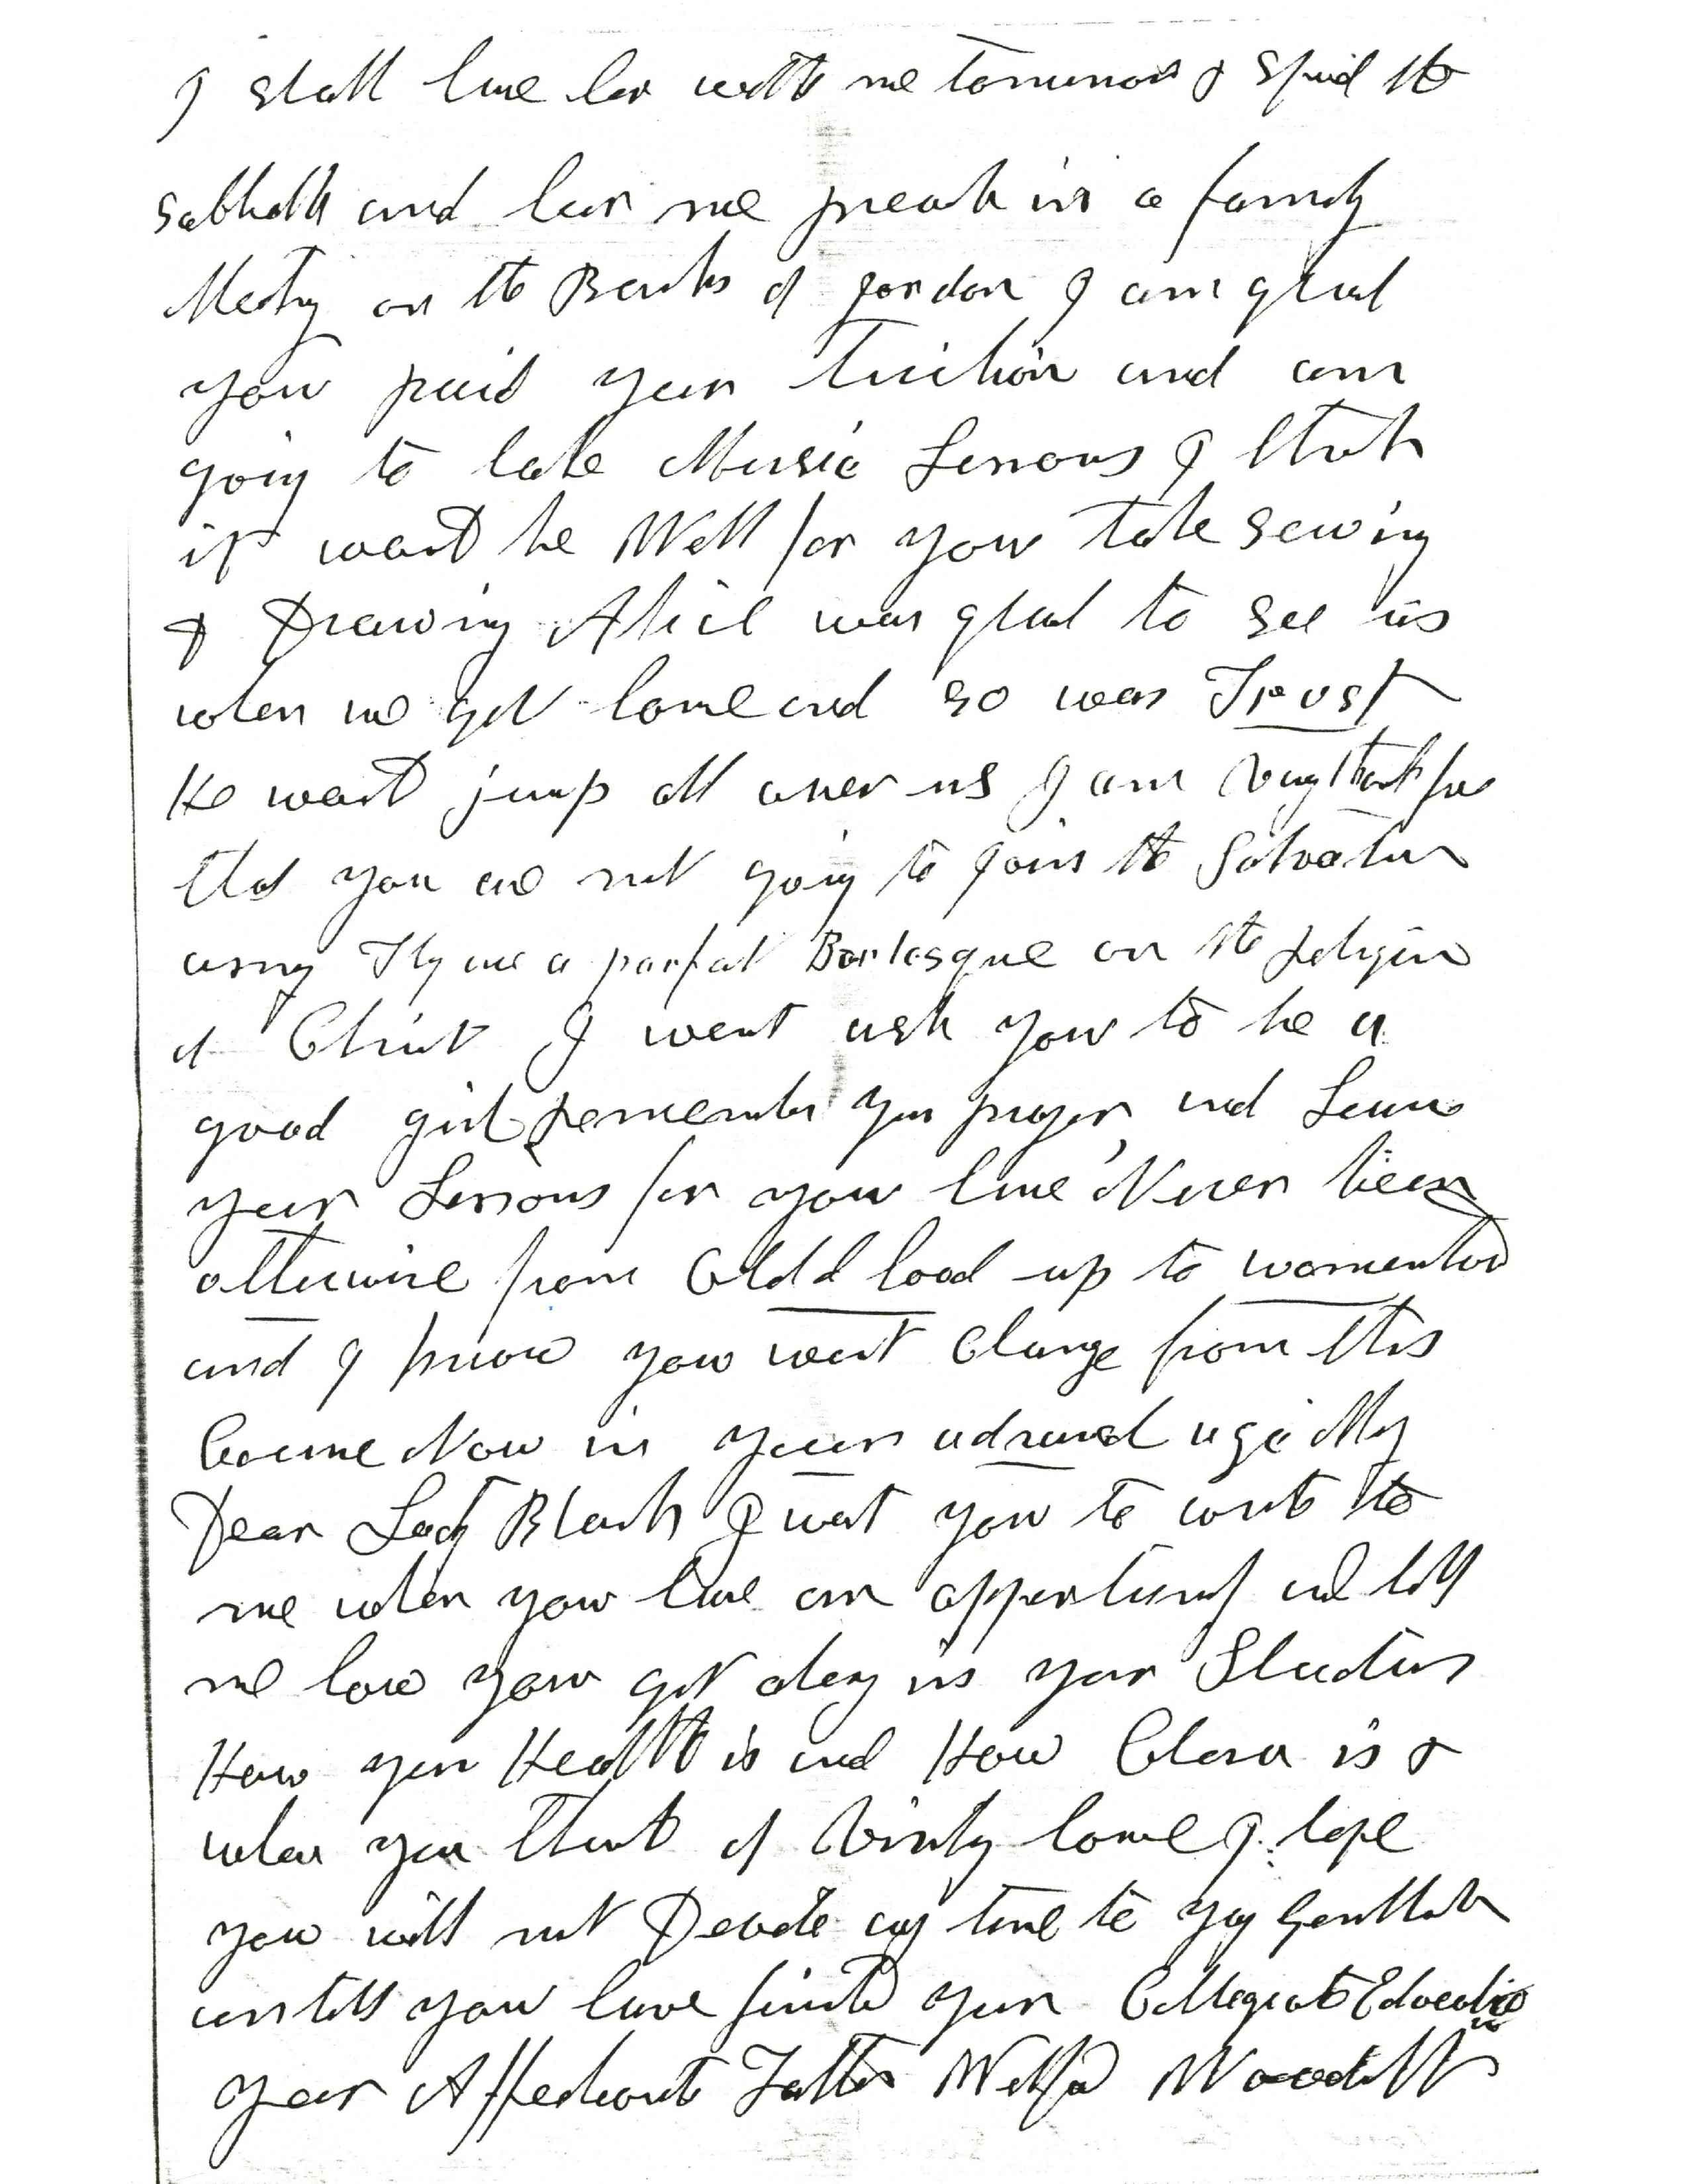 I shall have her with me tomorrow & spend the
Sabbath and hear me preach in a family
Meeting on the Banks of Jordan I am glad
you paid your tuition and am
going to take Music Lessons I think
it wont be Well for you take sewing
& Drawing Alice was glad to see us
when we got home and so was Trust
He want jump all over us I am vary thankful
that you are not going to join the Salvation
army They are a parfat Borlesque on the religion
of Christ I want ask you to be a
good girl remember your prayer and Learn
your Lessons for you have Never been
otherwise from Childhood up to womanhood
and I know you wont Change from this
Course Now in your advanced age My
Dear Lady Blanch I want you to write to
me when you have an oppertunity and tell
me how you get along in your Studies
How your Health is and How Clara is &
when you think of visiting home I hope
you will not Devote any time to yog Gentlemen
untill you have finished your Collegiate Education
your Affectionate Father Wilford Woodruff